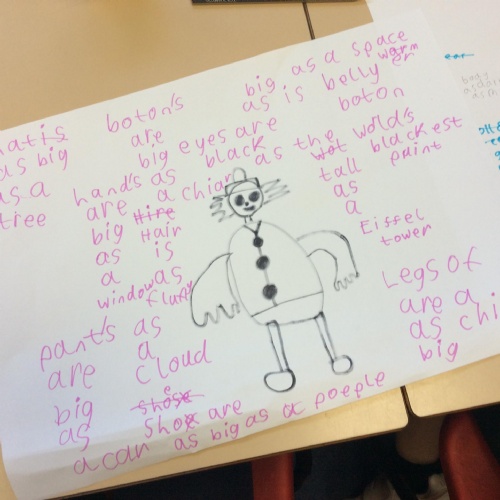 hatis
as big
as a
tree
boton's
are
big eyes are
black
big as a space
warm er
as is belly
boton
hand's as
are a chia
big Hire
as Hair
a is
window as
flufy
as the world's
wot blackest
tall paint
as
a
Eiffel
tower
Legs of
are a
as chi
big
pant's as
are a
cloud
big shose
as shoe are
a can as big as a poeple